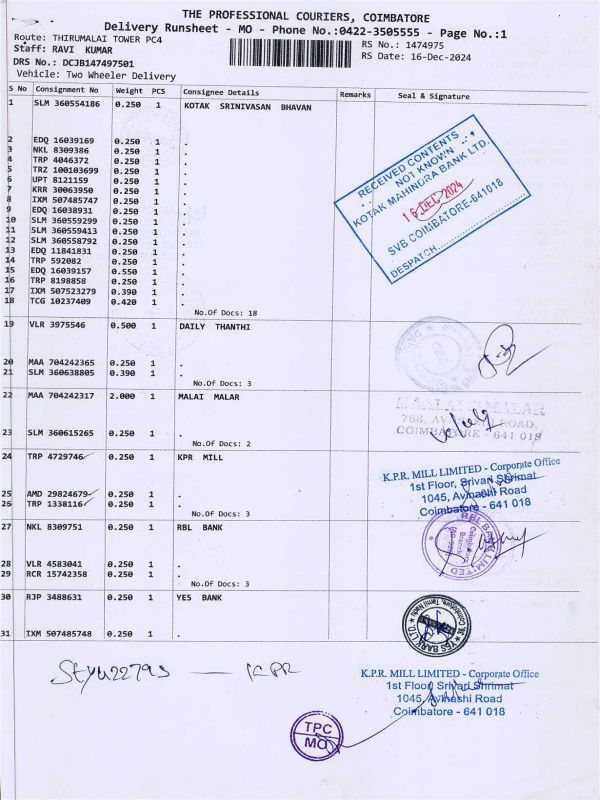 THE PROFESSIONAL COURIERS, COIMBATORE
Delivery Runsheet - MO - Phone No.:0422-3505555 - Page No.:1
Route: THIRUMALAI TOWER PC4
RS No.: 1474975
Staff: RAVI KUMAR
RS Date: 16-Dec-2024
DRS No.: DCJB147497501
Vehicle: Two Wheeler Delivery
S No Consignment No Weight PCS Consignee Details Remarks Seal & Signature
1 SLM 360554186 0.250 1 KOTAK SRINIVASAN BHAVAN
2 EDQ 16039169 0.250 1 .
3 NKL 8309386 0.250 1 .
4 TRP 4046372 0.250 1 .
5 TRZ 100103699 0.250 1 .
6 UPT 8121159 0.250 1 .
7 KRR 30063950 0.250 1 .
8 IXM 507485747 0.250 1 .
9 EDQ 16038931 0.250 1 .
10 SLM 360559299 0.250 1 .
11 SLM 360559413 0.250 1 .
12 SLM 360558792 0.250 1 .
13 EDQ 11841831 0.250 1 .
14 TRP 592082 0.250 1 .
15 EDQ 16039157 0.550 1 .
16 TRP 8198858 0.250 1 .
17 IXM 507523279 0.390 1 .
18 TCG 10237409 0.420 1 .
No.Of Docs: 18
RECEIVED CONTENTS
NOT KNOWN
KOTAK MAHINDRA BANK LTD.
16 DEC 2024
SVB COIMBATORE-641018
DESPATCH
19 VLR 3975546 0.500 1 DAILY THANTHI
20 MAA 704242365 0.250 1 .
21 SLM 360638805 0.390 1 .
No.Of Docs: 3
22 MAA 704242317 2.000 1 MALAI MALAR
COIMBATORE - 641 018
23 SLM 360615265 0.250 1 .
No.Of Docs: 2
24 TRP 4729746 0.250 1 KPR MILL
K.P.R. MILL LIMITED - Corporate Office
1st Floor, Srivari Shrimat
1045, Avinashi Road
Coimbatore - 641 018
25 AMD 29824679 0.250 1 .
26 TRP 1338116 0.250 1 .
No.Of Docs: 3
27 NKL 8309751 0.250 1 RBL BANK
RBL BANK LIMITED
Coimbatore
Branch
28 VLR 4583041 0.250 1 .
29 RCR 15742358 0.250 1 .
No.Of Docs: 3
30 RJP 3488631 0.250 1 YES BANK
YES BANK LTD.
31 IXM 507485748 0.250 1 .
KPR
K.P.R. MILL LIMITED - Corporate Office
1st Floor, Srivari Shrimat
1045, Avinashi Road
Coimbatore - 641 018
TPC
MO